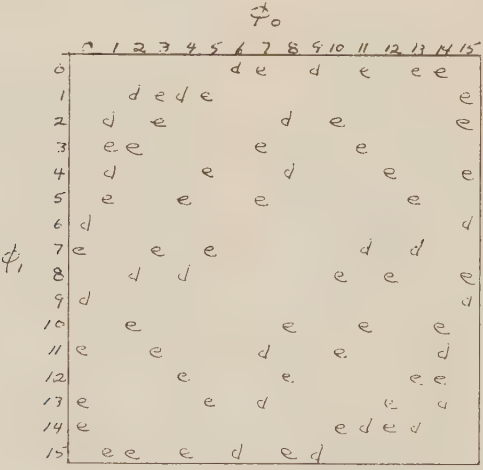 0 1 2 3 4 5 6 7 8 9 10 11 12 13 14 15
0 d e d e e e
1 d e d e e
2 d e d e e
3 e e e e
4 d e d e e
5 e e e e
6 d d
7 e e e d d
8 d d e e e
9 d d
10 e e e e
11 e e d e d
12 e e e e
13 e e d e d
14 e e d e d
15 e e e d e d